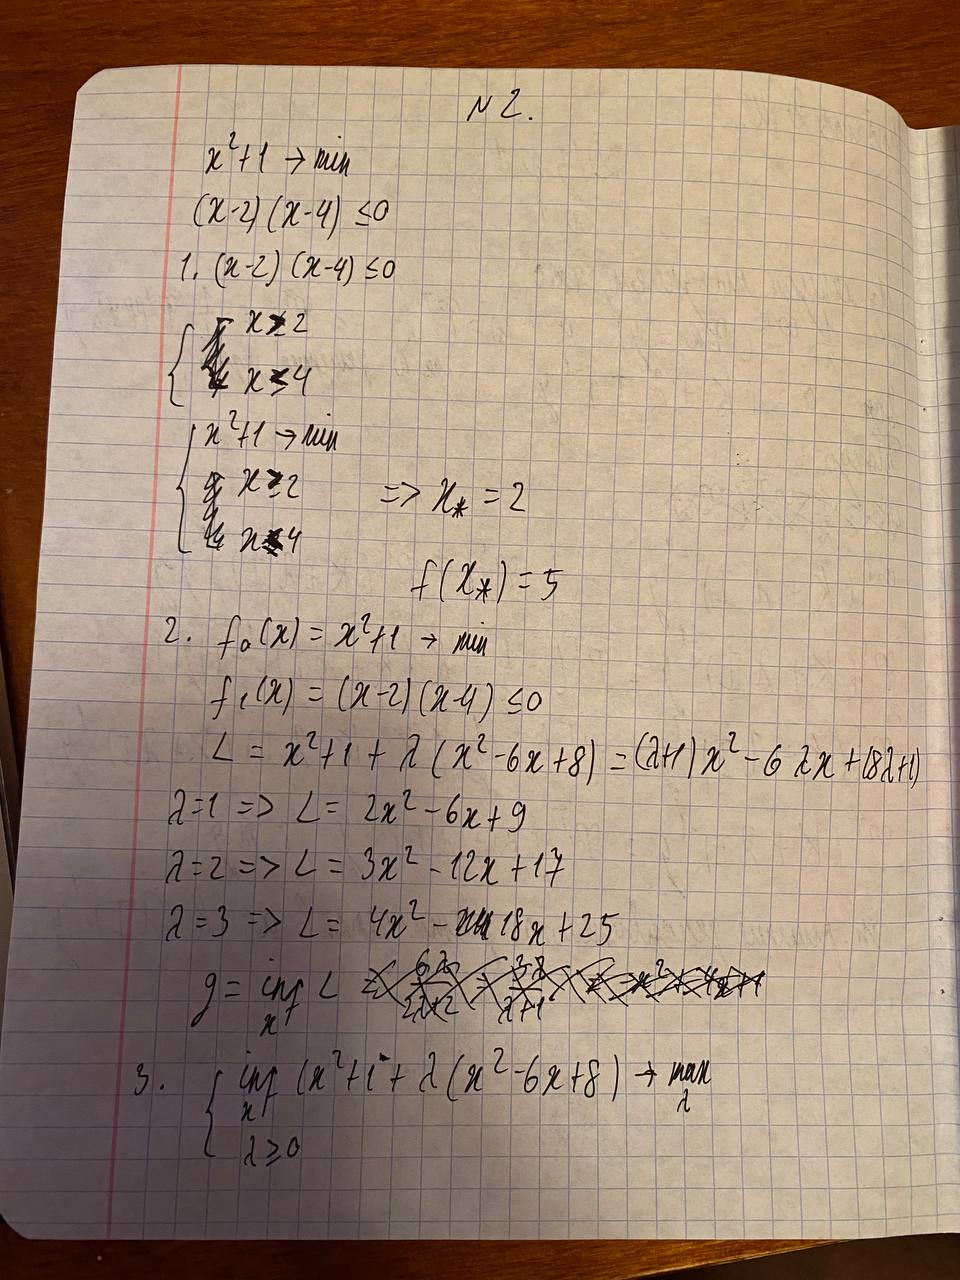 N 2.
x²+1 → min
(x-2)(x-4) ≤0
1. (x-2)(x-4) ≤0
{ x≥2
x≤4
{ x²+1 → min
x≥2 => x* = 2
x≤4
f(x*) = 5
2. f₀(x) = x²+1 → min
f₁(x) = (x-2)(x-4) ≤0
L = x²+1 + λ(x²-6x+8) = (λ+1)x² - 6λx + (8λ+1)
λ=1 => L = 2x² - 6x + 9
λ=2 => L = 3x² - 12x + 17
λ=3 => L = 4x² - 18x + 25
g = inf L
x
3. { inf (x²+1 + λ(x²-6x+8) → max
x λ
λ ≥ 0